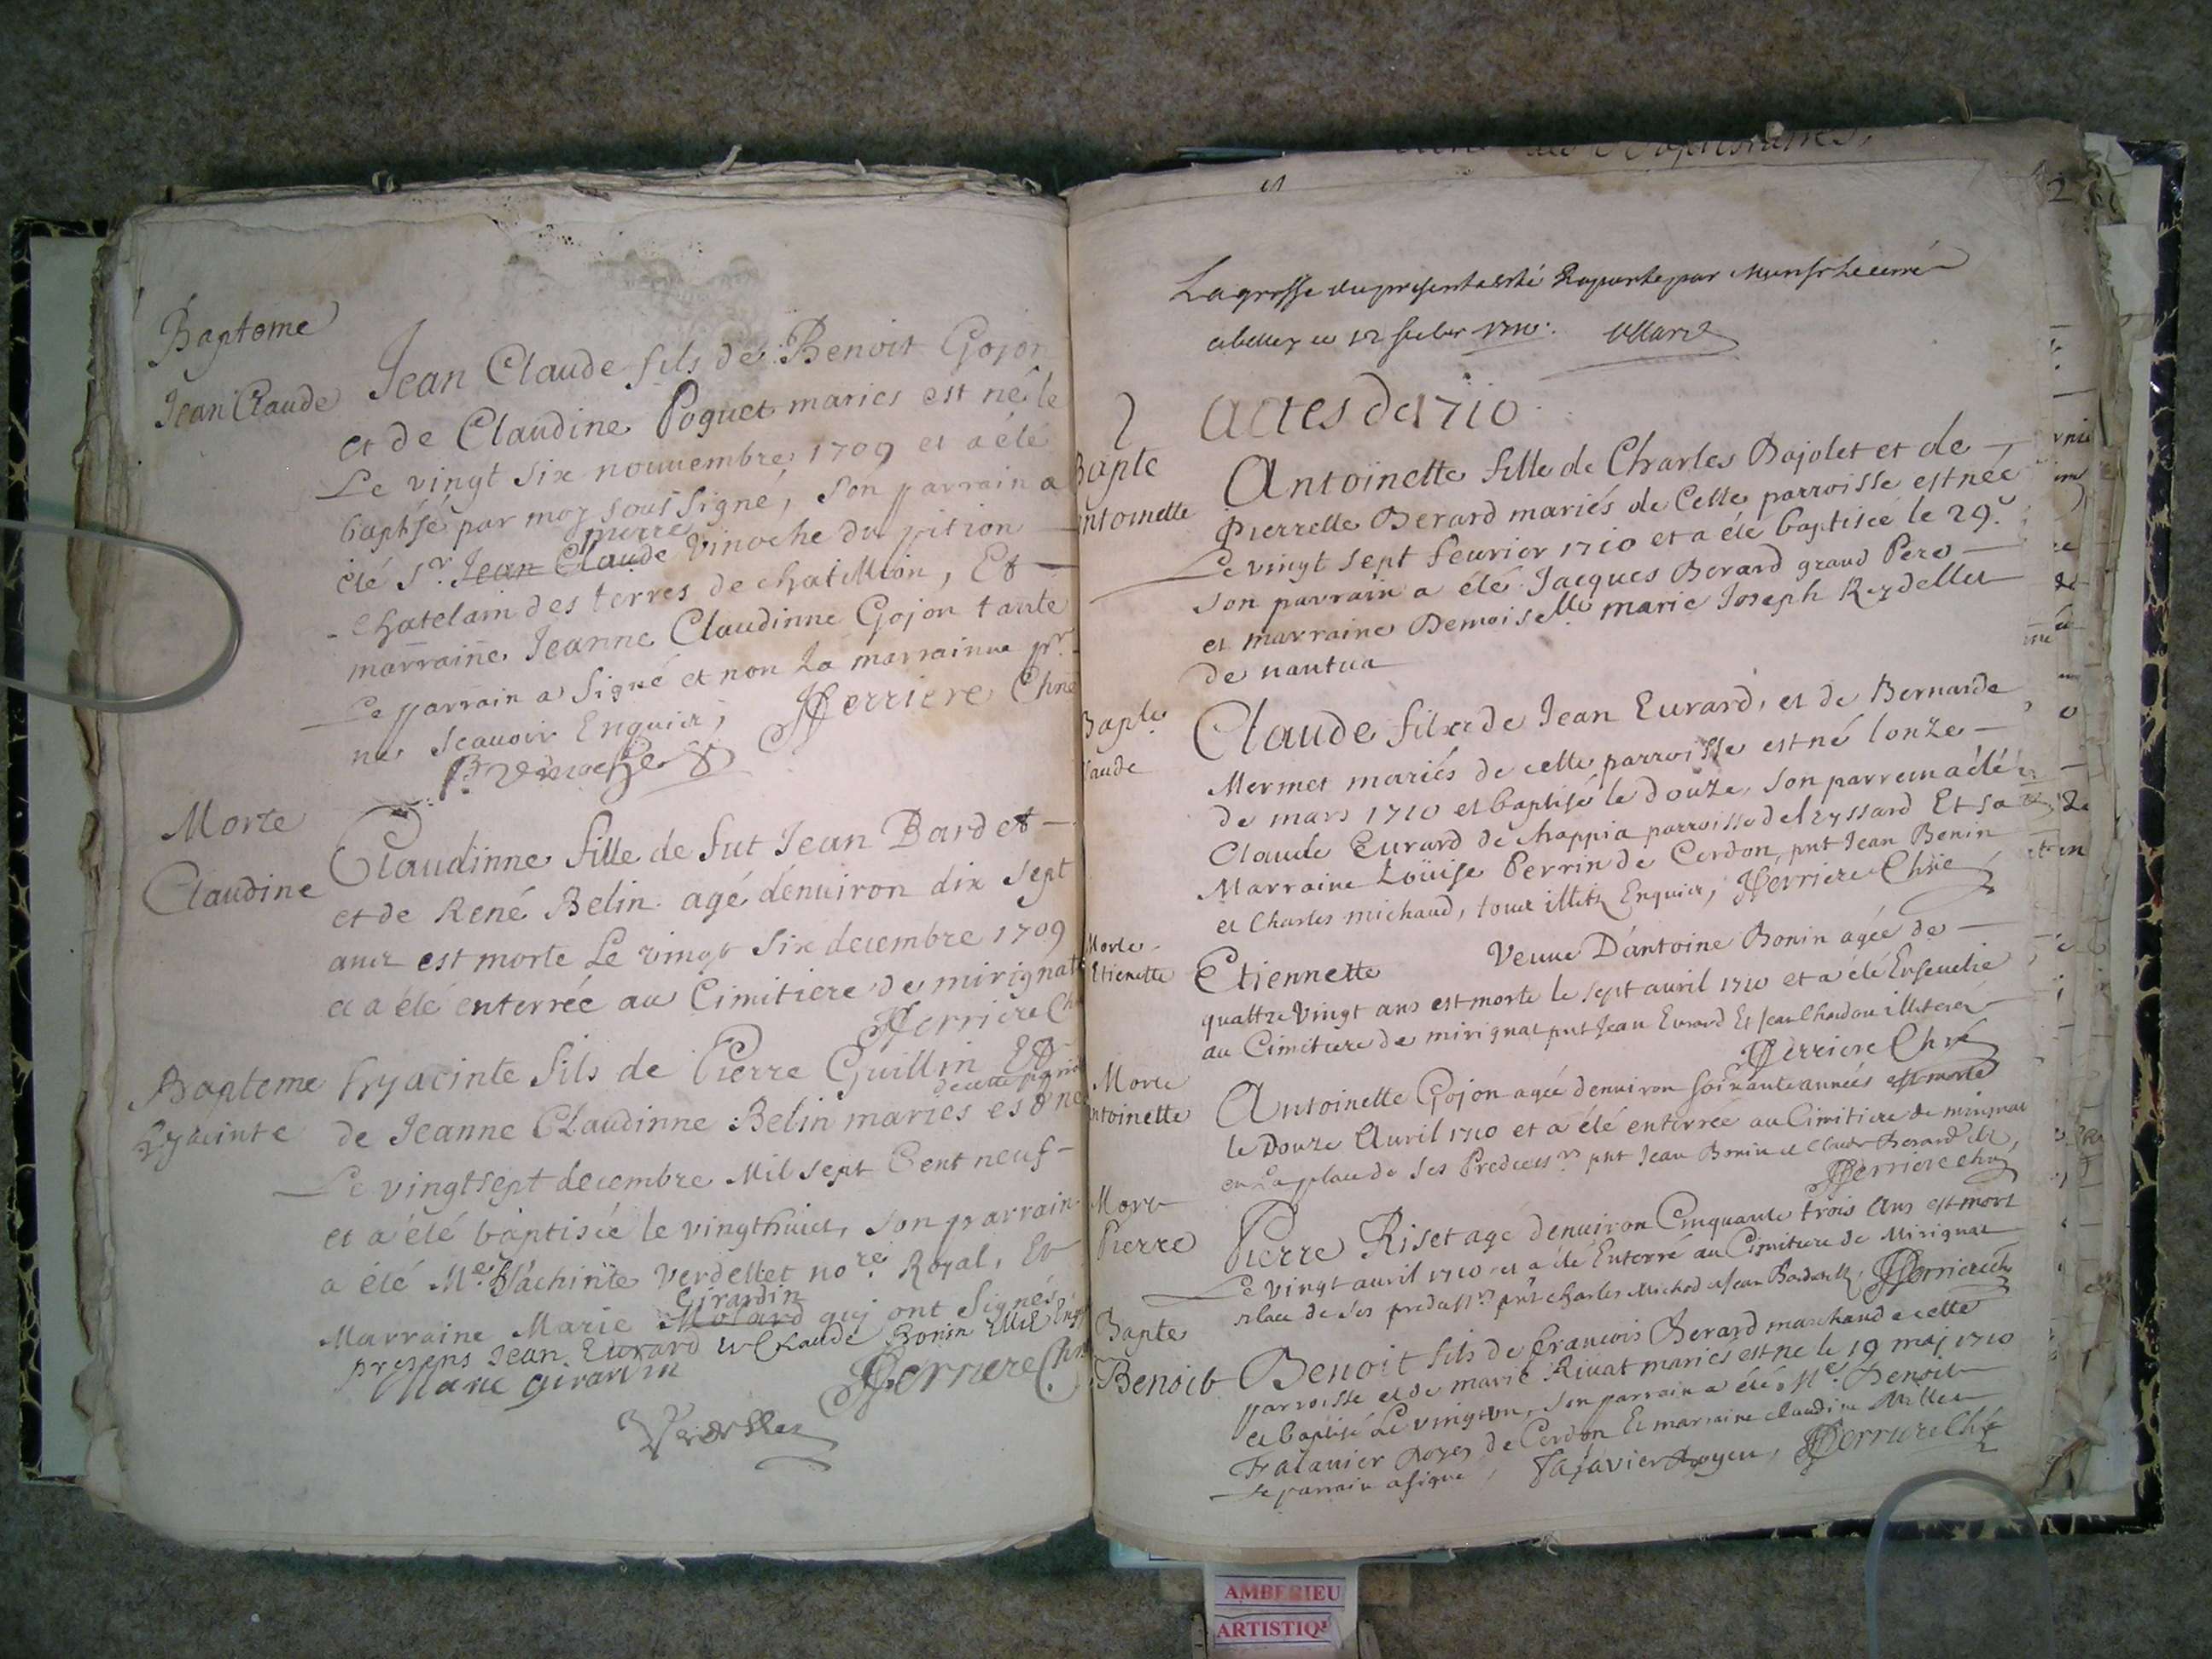 Baptome
Jean Claude
Jean Claude fils de Benoit Gojon
et de Claudine Poguet maries est né le
Le vingt six nouuembre 1709 et a été
baptisé par moy sous signé, son parrain a
pierre
été Sr. Jean Claude Vinoche du pition
chatelain des terres de chatillion, Et
marraine Jeanne Claudinne Gojon tante
Le parrain a signé et non la marrainne pr.
ne scauoir Enquier, Ferriere Chne
Morte
Claudine
Claudinne fille de fut Jean Bardet
et de René Belin agé denuiron dix sept
ans est morte Le vingt six decembre 1709
et a été enterrée au Cimitiere de mirignat
Ferriere Ch
Bapteme
Hyacinte
Hyacinte fils de Pierre Guillin Et
de cette
de Jeanne Claudinne Belin mariés est né
Le vingtsept decembre Mil sept Cent neuf
et a été baptisée le vingthuict, son parrain
a été Me. Hiachinte Verdellet nore. Royal, Et
Girardin
Marraine Marie Molard quj ont signés
presens Jean Eurard et Claude Bonin
Marie girardin Ferriere Chn
Verdellet
2
La grosse du present a esté Raportée par Monsr Le curé
a belley ce 12
Actes de 1710
Bapte
ntoinette
Antoinette fille de Charles Bajolet et de
Pierrette Berard mariés de Cette parroisse est née
Le vingt sept feurier 1710 et a été baptisée le 29.
son parrain a été Jacques Berard grand Pere
et marraine Demoiselle marie Joseph Reydellet
de nantua
Bapte
laude
Claude fils de Jean Eurard, et de Bernarde
Mermet mariés de cette parroisse est né lonze
de mars 1710 et baptisé le douze, son parrein a été
Claude Eurard de chappia parroisse de Leyssard Et sa
Marraine Loüise Perrin de Cerdon, pnt Jean Benin
et Charles michaud, tous illetz Enquier, Ferriere Chne
Morte
Etienette
Etiennette Veuue D'antoine Bonin agée de
quattre Vingt ans est morte le sept auril 1710 et a été Enseuelie
au Cimitiere de mirignat pnt Jean Eurard Et Jean Chardon illiteres
Ferriere Chne
Morte
ntoinette
Antoinette Gojon agée denuiron soixante années est morte
le Douze Auril 1710 et a été enterrée au Cimitiere de mirignat
en La place de ses Predecessrs pnt Jean Bonin et Claude Berard
Ferriere chn
Mort
Pierre
Pierre Riset agé denuiron Cinquante trois Ans est mort
Le vingt auril 1710 et a été Enterré au Cimitiere de Mirignat
place de ses predessrs pnt Charles Michod et Jean Ferriere Ch
Bapte
Benoit
Benoit fils de francois Berard marchand de cette
parroisse et de marie Riuat mariés est né le 19 maj 1710
et baptisé Le vingt un, son parrain a été Me. Benoit
de Cerdon Et marraine claudine Millet
Le parrain a signé, Ferriere Chne
AMBERIEU
ARTISTIQU